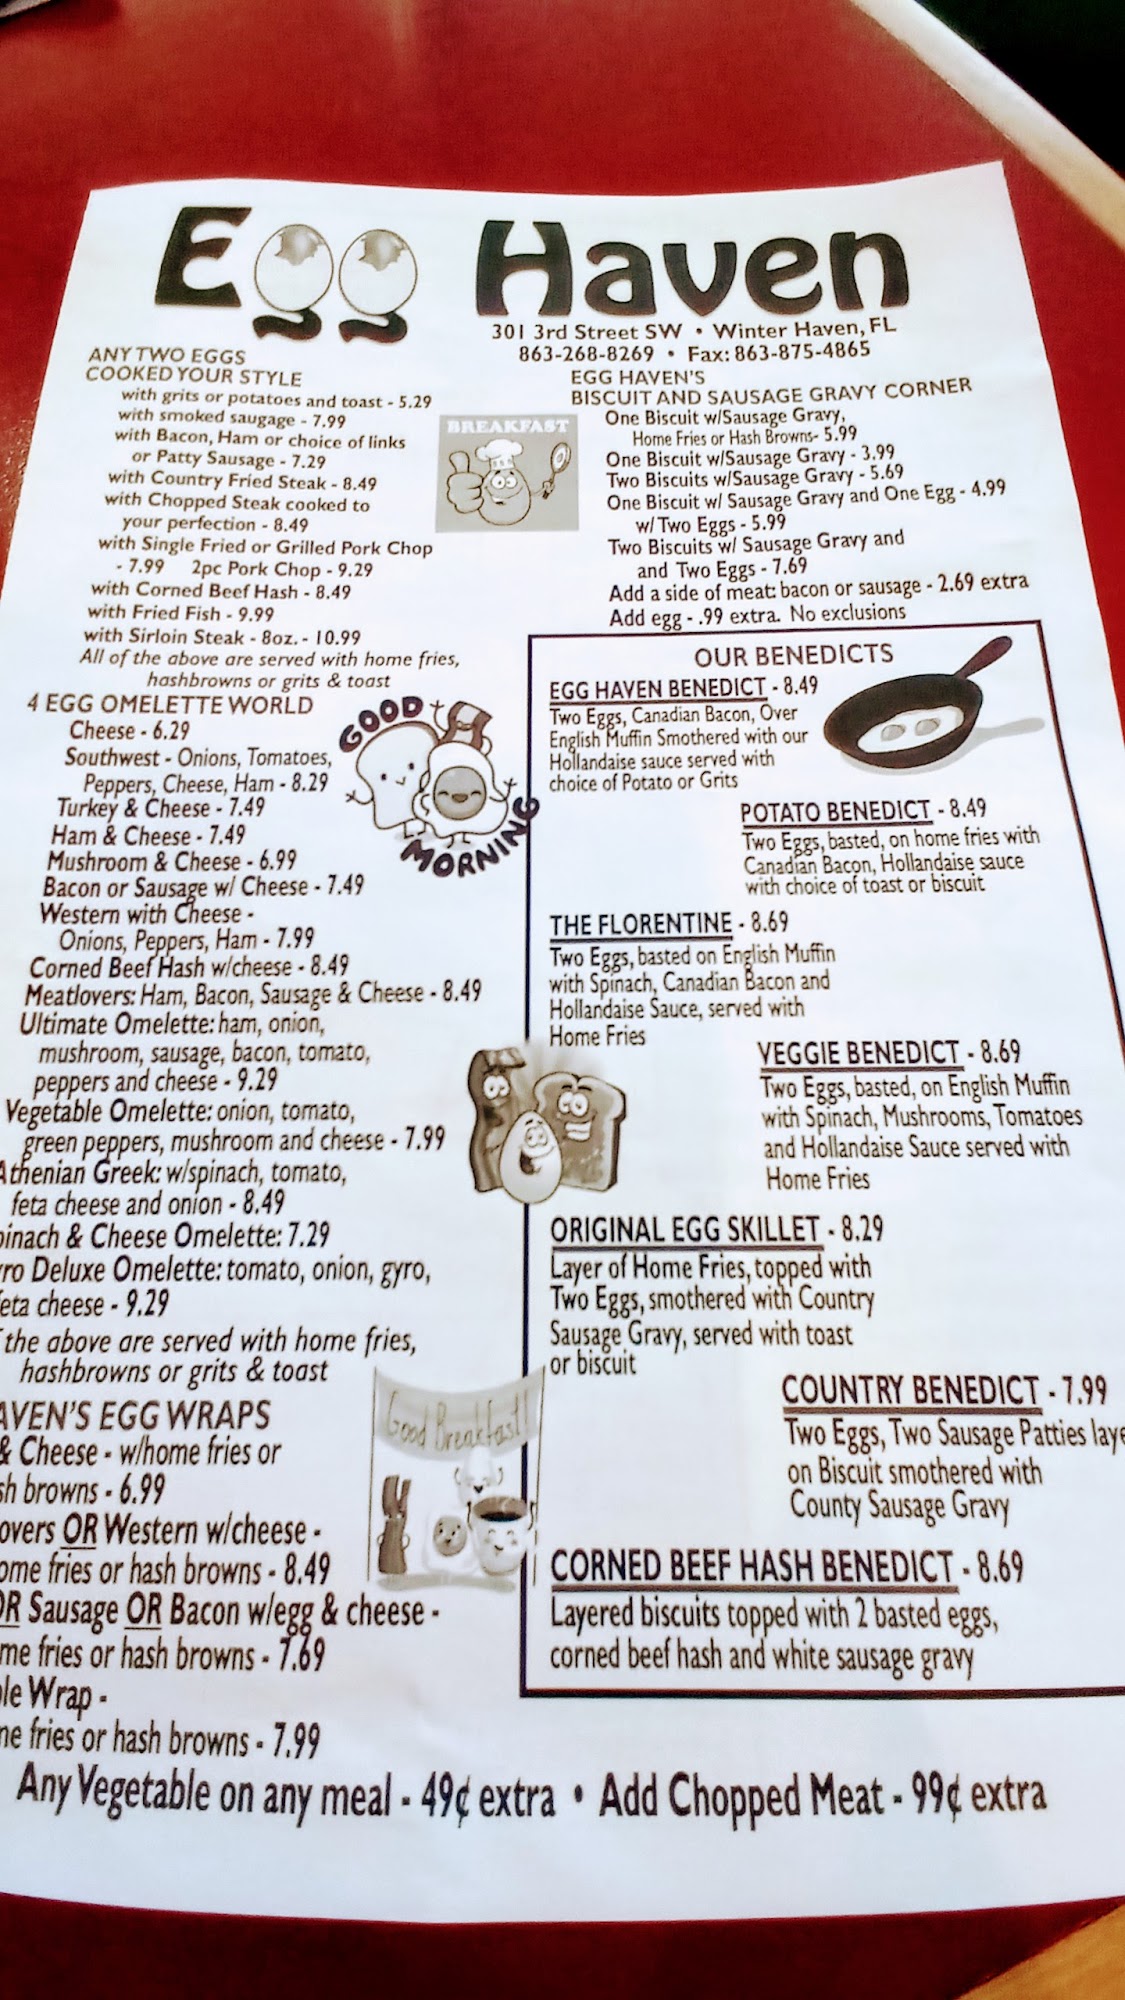 Egg Haven
301 3rd Street SW • Winter Haven, FL
863-268-8269 • Fax: 863-875-4865
ANY TWO EGGS
COOKED YOUR STYLE
with grits or potatoes and toast - 5.29
with smoked saugage - 7.99
with Bacon, Ham or choice of links
or Patty Sausage - 7.29
with Country Fried Steak - 8.49
with Chopped Steak cooked to
your perfection - 8.49
with Single Fried or Grilled Pork Chop
- 7.99 2pc Pork Chop - 9.29
with Corned Beef Hash - 8.49
with Fried Fish - 9.99
with Sirloin Steak - 8oz. - 10.99
All of the above are served with home fries,
hashbrowns or grits & toast
4 EGG OMELETTE WORLD
Cheese - 6.29
Southwest - Onions, Tomatoes,
Peppers, Cheese, Ham - 8.29
Turkey & Cheese - 7.49
Ham & Cheese - 7.49
Mushroom & Cheese - 6.99
Bacon or Sausage w/ Cheese - 7.49
Western with Cheese -
Onions, Peppers, Ham - 7.99
Corned Beef Hash w/cheese - 8.49
Meatlovers: Ham, Bacon, Sausage & Cheese - 8.49
Ultimate Omelette: ham, onion,
mushroom, sausage, bacon, tomato,
peppers and cheese - 9.29
Vegetable Omelette: onion, tomato,
green peppers, mushroom and cheese - 7.99
Athenian Greek: w/spinach, tomato,
feta cheese and onion - 8.49
pinach & Cheese Omelette: 7.29
yro Deluxe Omelette: tomato, onion, gyro,
feta cheese - 9.29
the above are served with home fries,
hashbrowns or grits & toast
AVEN'S EGG WRAPS
& Cheese - w/home fries or
sh browns - 6.99
overs OR Western w/cheese -
ome fries or hash browns - 8.49
OR Sausage OR Bacon w/egg & cheese -
me fries or hash browns - 7.69
le Wrap -
ne fries or hash browns - 7.99
BREAKFAST
GOOD
MORNING
Good Breakfast!
EGG HAVEN'S
BISCUIT AND SAUSAGE GRAVY CORNER
One Biscuit w/Sausage Gravy,
Home Fries or Hash Browns- 5.99
One Biscuit w/Sausage Gravy - 3.99
Two Biscuits w/Sausage Gravy - 5.69
One Biscuit w/ Sausage Gravy and One Egg - 4.99
w/ Two Eggs - 5.99
Two Biscuits w/ Sausage Gravy and
and Two Eggs - 7.69
Add a side of meat: bacon or sausage - 2.69 extra
Add egg - .99 extra. No exclusions
OUR BENEDICTS
EGG HAVEN BENEDICT - 8.49
Two Eggs, Canadian Bacon, Over
English Muffin Smothered with our
Hollandaise sauce served with
choice of Potato or Grits
POTATO BENEDICT - 8.49
Two Eggs, basted, on home fries with
Canadian Bacon, Hollandaise sauce
with choice of toast or biscuit
THE FLORENTINE - 8.69
Two Eggs, basted on English Muffin
with Spinach, Canadian Bacon and
Hollandaise Sauce, served with
Home Fries
VEGGIE BENEDICT - 8.69
Two Eggs, basted, on English Muffin
with Spinach, Mushrooms, Tomatoes
and Hollandaise Sauce served with
Home Fries
ORIGINAL EGG SKILLET - 8.29
Layer of Home Fries, topped with
Two Eggs, smothered with Country
Sausage Gravy, served with toast
or biscuit
COUNTRY BENEDICT - 7.99
Two Eggs, Two Sausage Patties laye
on Biscuit smothered with
County Sausage Gravy
CORNED BEEF HASH BENEDICT - 8.69
Layered biscuits topped with 2 basted eggs,
corned beef hash and white sausage gravy
Any Vegetable on any meal - 49¢ extra • Add Chopped Meat - 99¢ extra